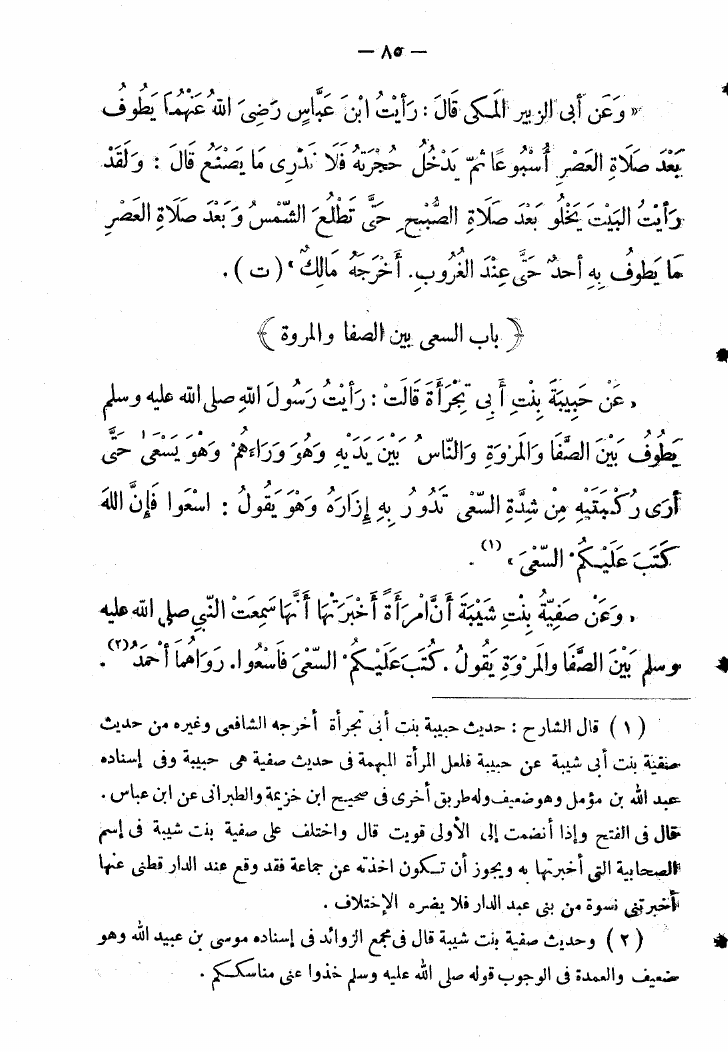 — ٨٥ —
« وَعَن أبى الزبير المكى قَالَ : رَأَيْتُ ابْنَ عَبَّاسٍ رَضِىَ اللهُ عَنْهُمَا يَطُوفُ
بَعْدَ صَلَاةِ العَصْرِ أُسْبُوعًا ثمّ يَدْخُلُ حُجْرَتَهُ فَلَا نَدْرِى مَا يَصْنَعُ قَالَ : وَلَقَدْ
رَأَيْتُ البَيْتَ يَخْلُو بَعْدَ صَلَاةِ الصُّبْحِ حَتَّى تَطْلُعَ الشَّمْسُ وَبَعْدَ صَلَاةِ العَصْرِ
مَا يَطُوفُ بِهِ أحدٌ حَتَّى عِنْدَ الغُرُوبِ. أَخْرَجَهُ مَالِكٌ » ( ت ) .
﴿ باب السعى بين الصفا والمروة ﴾
« عَنْ حَبِيبَةَ بِنْتِ أَبِى تِجْرَأَةَ قَالَتْ : رَأَيْتُ رَسُولَ اللهِ صلى الله عليه وسلم
يَطُوفُ بَيْنَ الصَّفَا وَالمَرْوَةِ وَالنَّاسُ بَيْنَ يَدَيْهِ وَهُوَ وَرَاءَهُمْ وَهْوَ يَسْعَى حَتَّى
أَرَى رُكْبَتَيْهِ مِنْ شِدَّةِ السَّعْىِ تَدُورُ بِهِ إِزَارُهُ وَهْوَ يَقُولُ : اسْعَوا فَإِنَّ اللهَ
كَتَبَ عَلَيْكُمْ السَّعْىَ » (١) .
« وَعَنْ صَفِيَّةَ بِنْتِ شَيْبَةَ أَنَّ امْرَأَةً أَخْبَرَتْهَا أَنَّهَا سَمِعَتْ النَّبِي صلى الله عليه
وسلم بَيْنَ الصَّفَا والمَرْوَةِ يَقُولُ . كُتِبَ عَلَيْكُمْ السَّعْىَ فَاسْعُوا. رَوَاهُمَا أَحْمَدُ (٢) .
( ١ ) قال الشارح : حديث حبيبة بنت أبى تجرأة أخرجه الشافعى وغيره من حديث
صفية بنت أبى شيبة عن حبيبة فلعل المرأة المبهمة فى حديث صفية هى حبيبة وفى إسناده
عبد الله بن مؤمل وهو ضعيف وله طريق أخرى فى صحيح ابن خزيمة والطبرانى عن ابن عباس .
قال فى الفتح وإذا أنضمت إلى الأولى قويت قال واختلف على صفية بنت شيبة فى إسم
الصحابية التى أخبرتها به ويجوز أن تكون اخذته عن جماعة فقد وقع عند الدار قطنى عنها
أخبرتنى نسوة من بنى عبد الدار فلا يضره الإختلاف .
( ٢ ) وحديث صفية بنت شيبة قال فى مجمع الزوائد فى إسناده موسى بن عبيد الله وهو
ضعيف والعمدة فى الوجوب قوله صلى الله عليه وسلم خذوا عنى مناسككم .